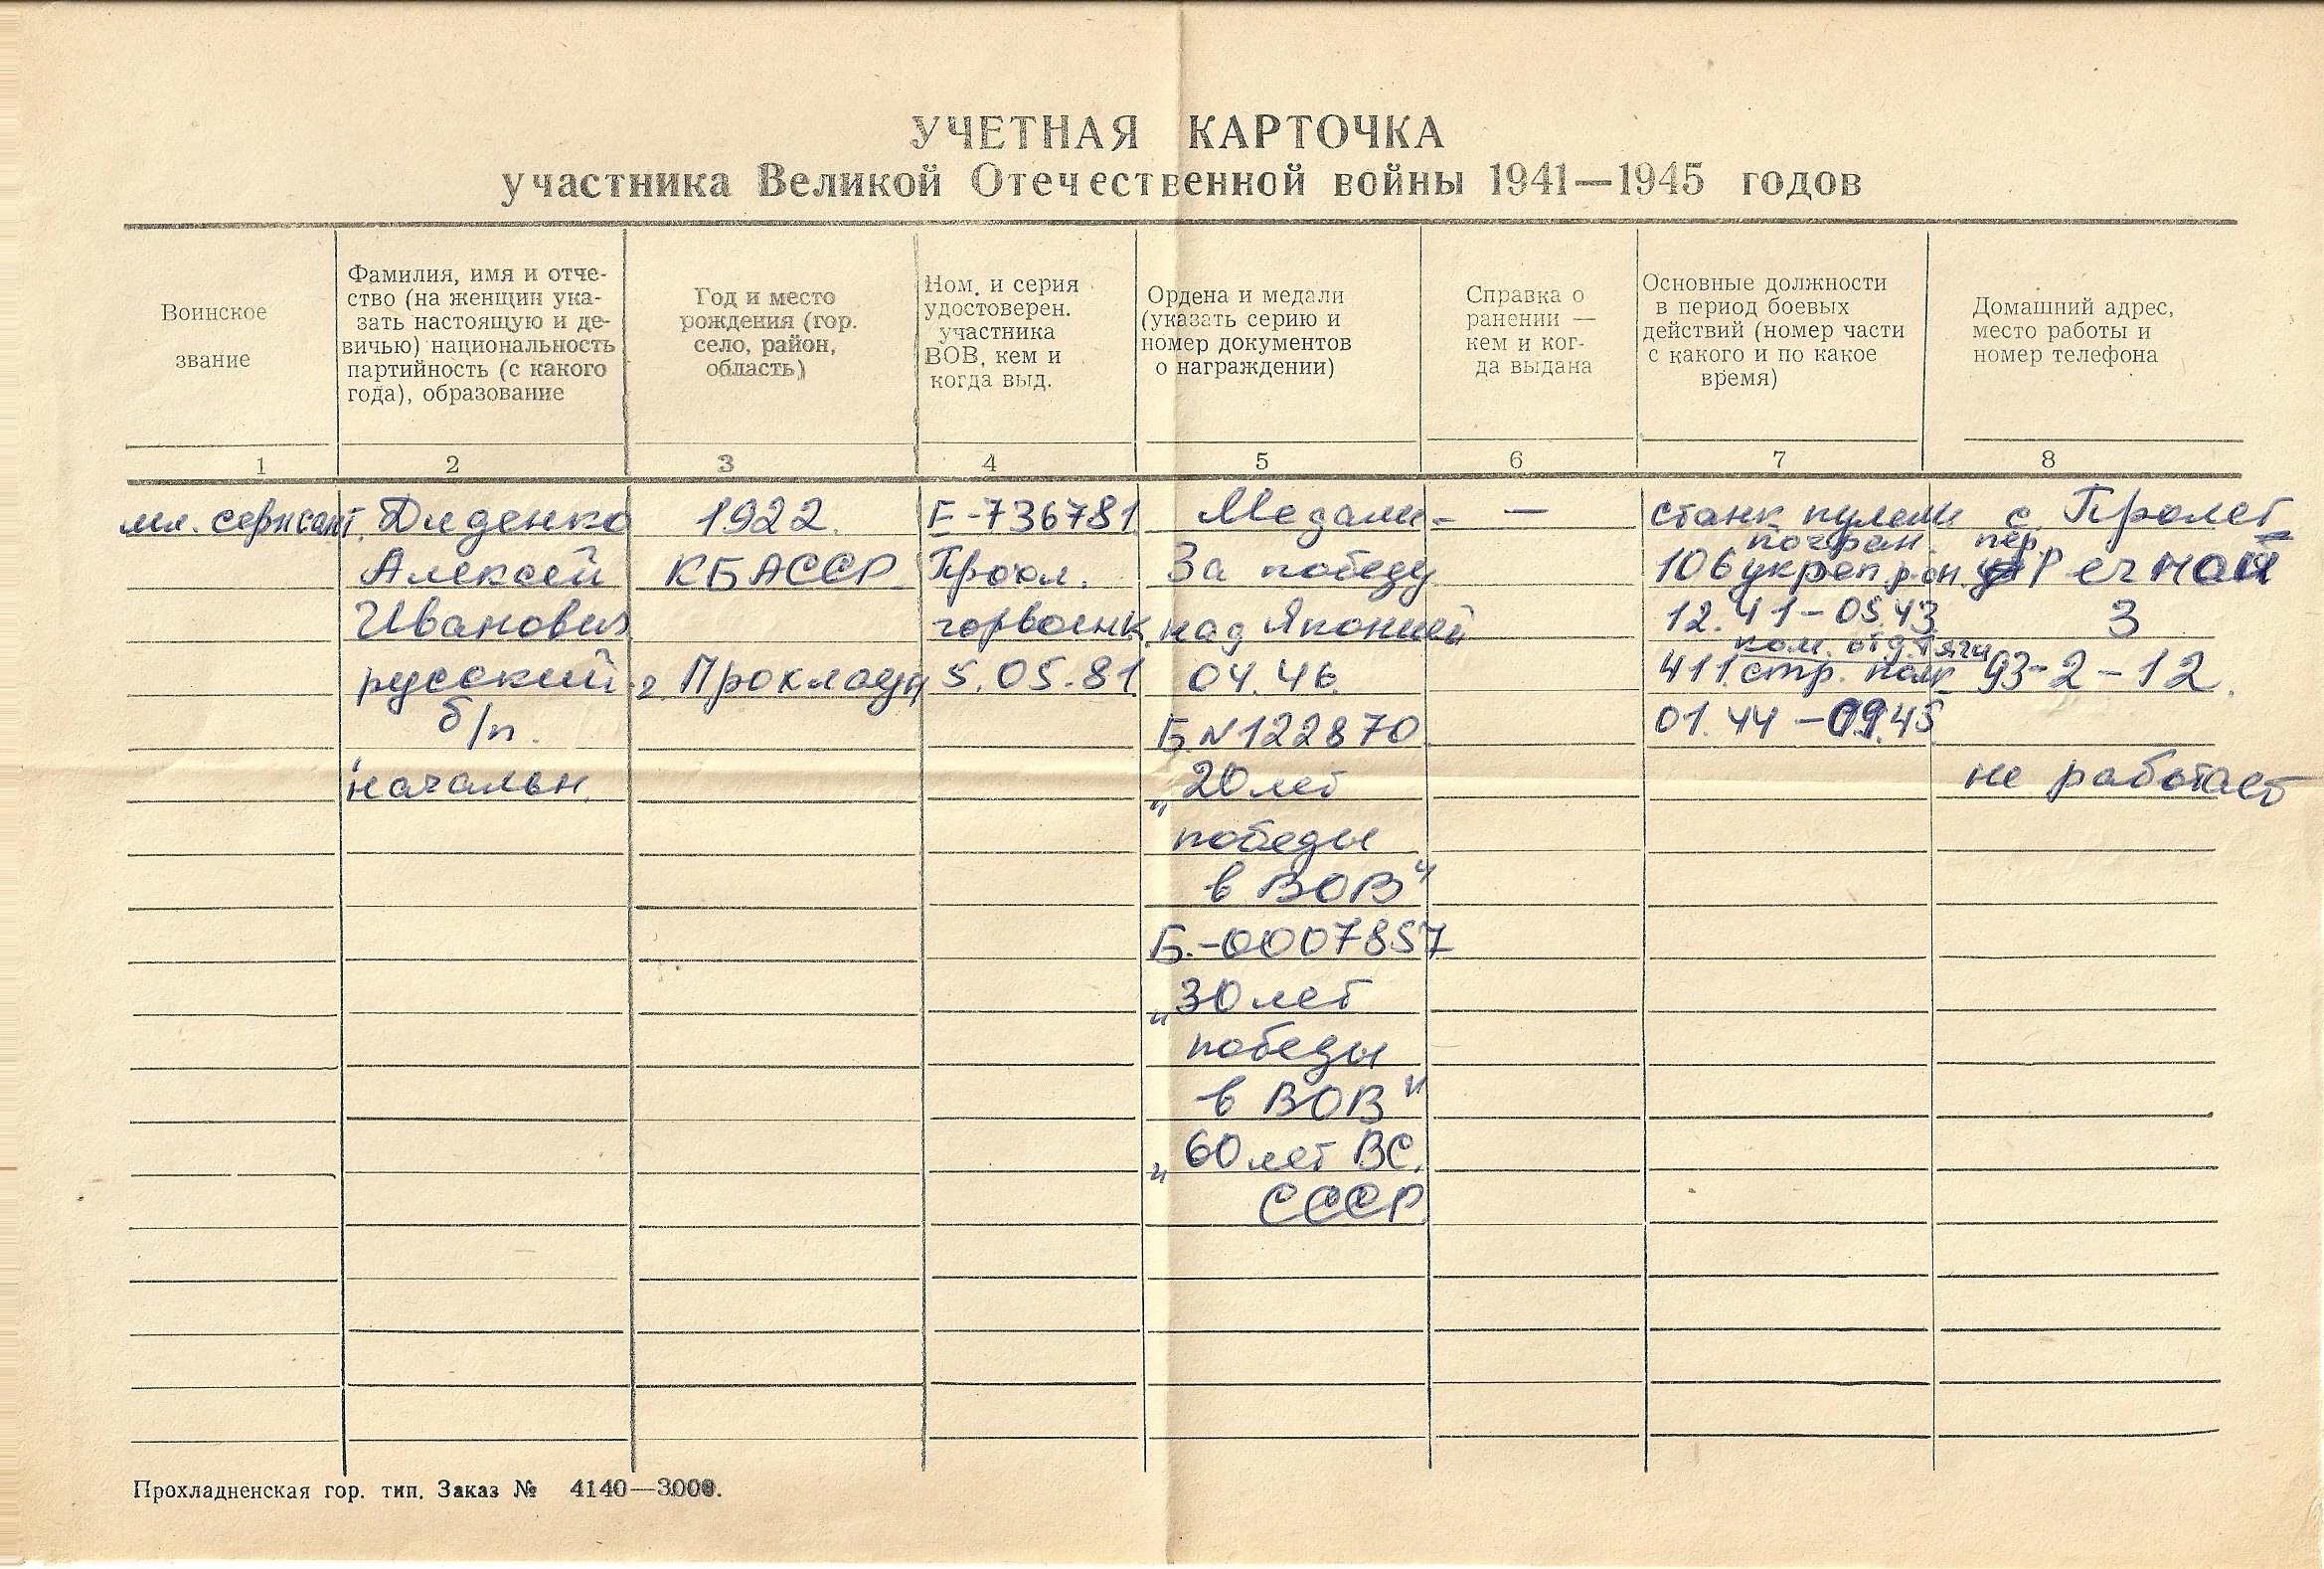 УЧЕТНАЯ КАРТОЧКА
участника Великой Отечественной войны 1941—1945 годов
Воинское
звание
Фамилия, имя и отче-
ство (на женщин ука-
зать настоящую и де-
вичью) национальность
партийность (с какого
года), образование
Год и место
рождения (гор.
село, район,
область)
Ном. и серия
удостоверен.
участника
ВОВ, кем и
когда выд.
Ордена и медали
(указать серию и
номер документов
о награждении)
Справка о
ранении —
кем и ког-
да выдана
Основные должности
в период боевых
действий (номер части
с какого и по какое
время)
Домашний адрес,
место работы и
номер телефона
1 2 3 4 5 6 7 8
мл. сержант.
Диденко
Алексей
Иванович
русский
б/п.
начальн.
1922.
КБАССР
г. Прохладн
Е-736781
Прохл.
горвоенк.
5.05.81
Медали-
За победу
над Японией
04.46.
Б N122870.
"20 лет
победы
в ВОВ"
Б.-0007857
"30 лет
победы
в ВОВ"
"60 лет ВС.
СССР.
—
станк пулем
погран.
106 укреп. р-он.
12.41-05.43
ком. отд. тяги
411 стр. полк
01.44-09.45
с. Пролет
пер.
Речной
3
93-2-12.
не работает
Прохладненская гор. тип. Заказ № 4140—3000.